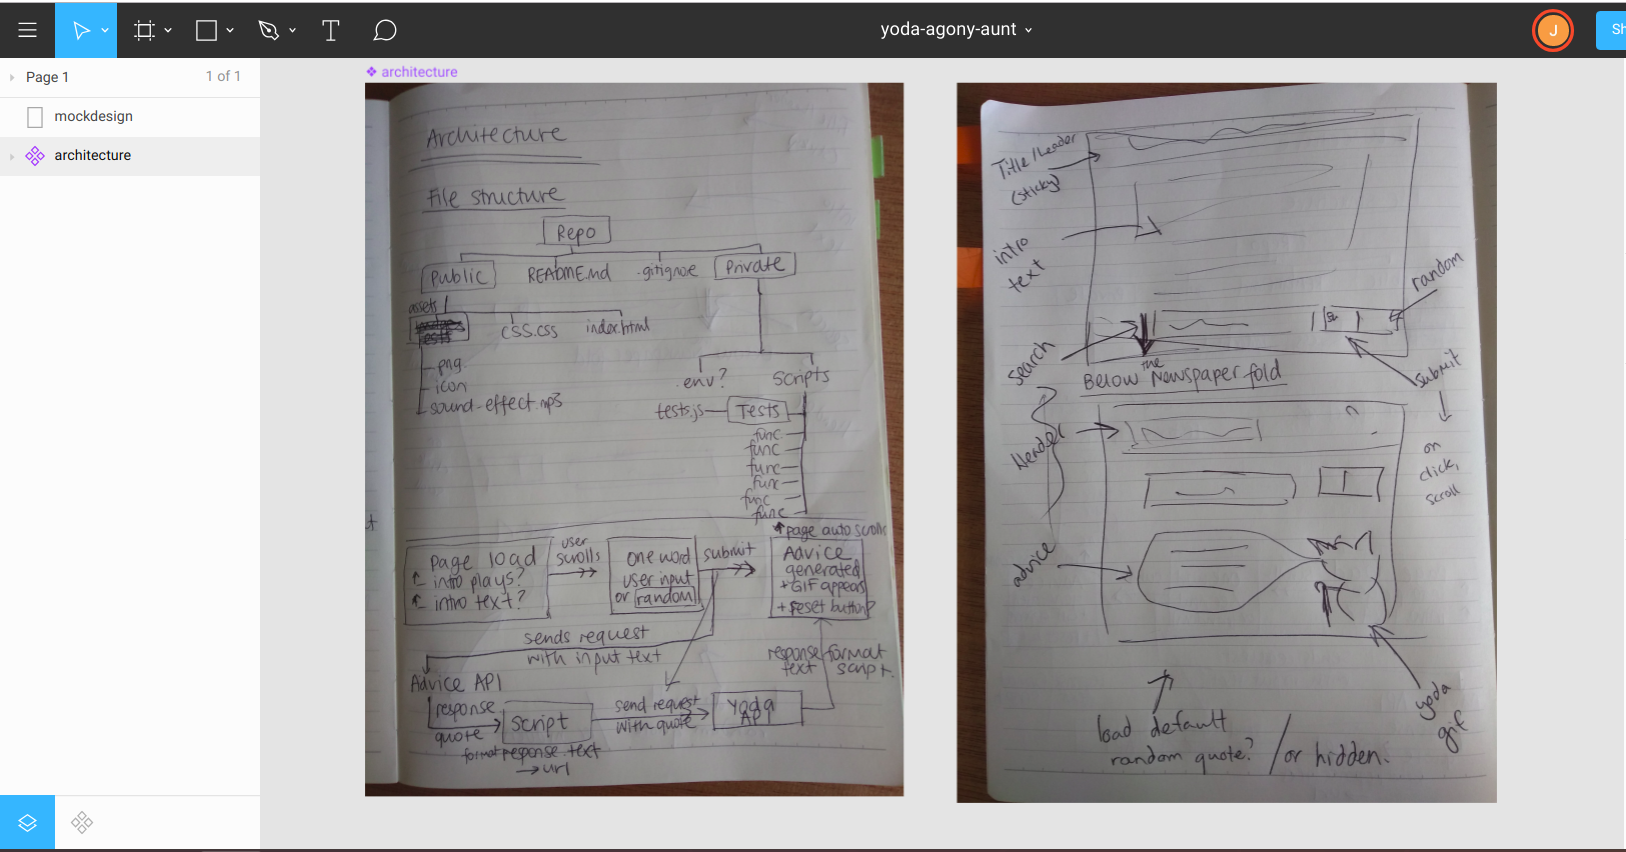 yoda-agony-aunt
J
Sh
Page 1
1 of 1
mockdesign
architecture
architecture
Architecture
File structure
Repo
Public
README.md
.gitignore
Private
assets
css.css
index.html
png
icon
sound-effect.mp3
.env?
Scripts
tests.js
Tests
func
func
func
func
func
func
page auto scrolls
Page load
intro plays?
intro text?
user
scrolls
one word
user input
or random
submit
Advice
generated
+ GIF appears
+ reset button?
sends request
with input text
Advice API
response
quote
script
format response text
→ url
send request
with quote
Yoda
API
response
text
format
script.
Title/header
(sticky)
intro
text
search
random
submit
on
click,
scroll
Below the Newspaper fold
Header
advice
yoda
gif
load default
random quote? / or hidden.